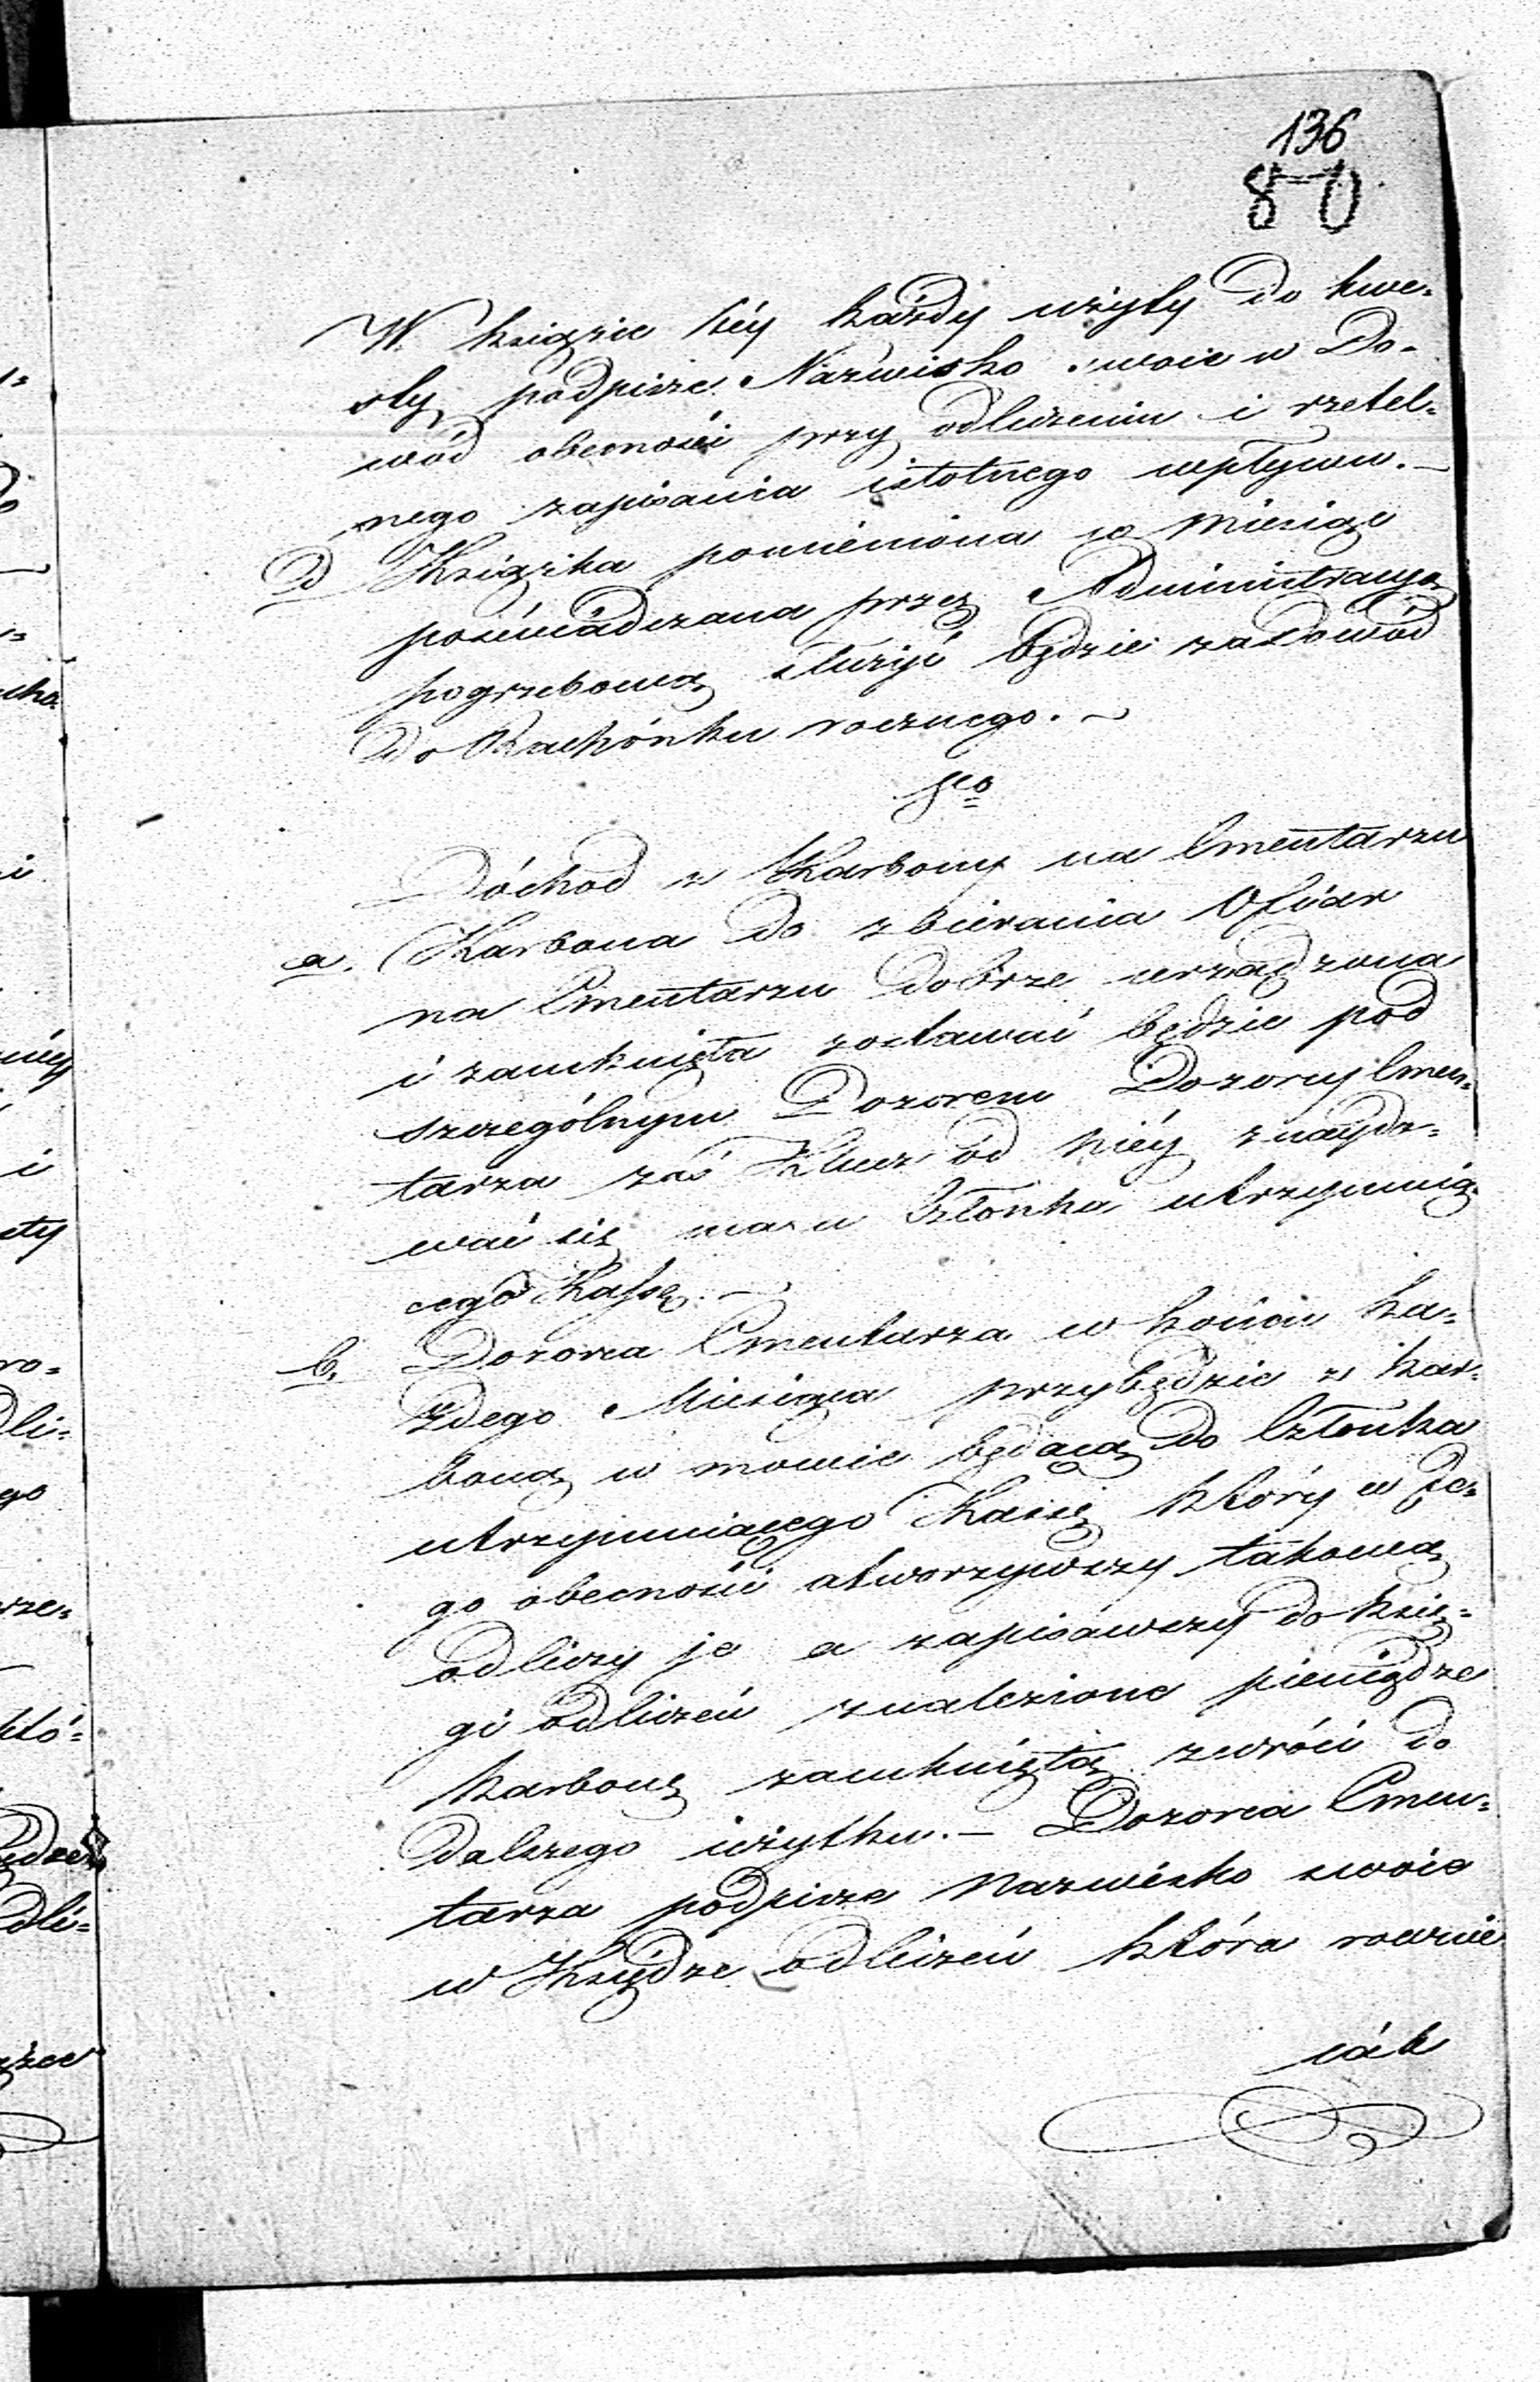 136
80
W książce téy każdy użyty do kwe-
sty podpisze Nazwisko swoie w Do-
wód obecności przy odliczeniu i rzetel-
nego zapisania istotnego wpływu. —
d Książka pomieniona co Miesiąc
poświadczana przez Administracyą
pogrzebową służyć będzie za Dowód
do Rachónku rocznego. —
Dóchod z Karbony na Cmentarzu
a. Karbona do zbierania Ofiar
na Cmentarzu dobrze urządzona
i zamknięta zostawać będzie pod
szczególnym Dozorem Dozorcy Cmen-
tarza zaś Klucz od niéy znaydo-
wać się ma u Członka utrzymuią-
cego Kassę. —
b. Dozorca Cmentarza w końcu ka-
żdego Miesiąca przybędzie z kar-
boną w mowie będącą do Członka
utrzymuiącego Kassę który w Je-
go obecności otworzywszy takową
odliczy je a zapisawszy do księ-
gi odliczeń znalezione pieniądze
karbonę zamkniętą zwróci do
dalszego użytku. — Dozorca Cmen-
tarza podpisze Nazwisko swoie
w Księdze odliczeń która rocznie
iák